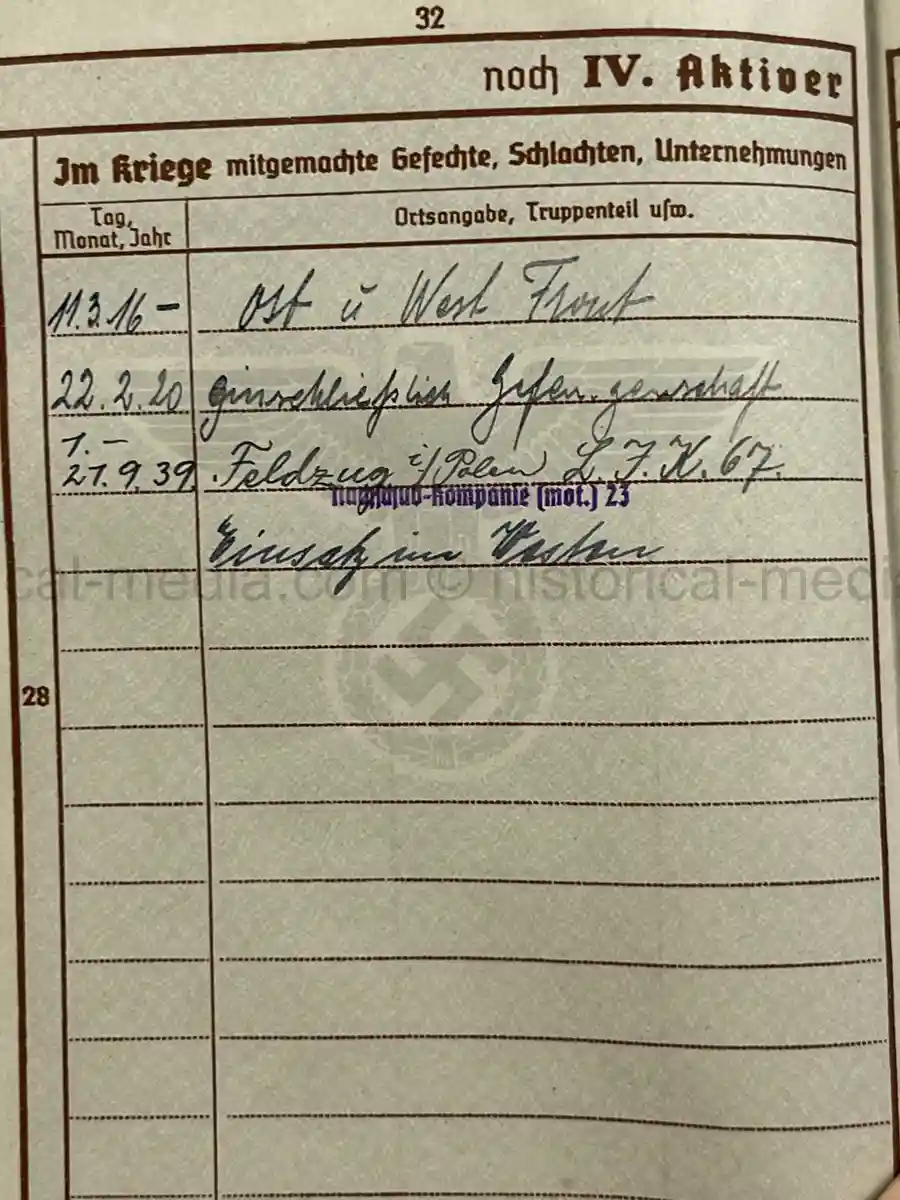 32
noch IV. Aktiver
Im Kriege mitgemachte Gefechte, Schlachten, Unternehmungen
Tag,
Monat, Jahr
Ortsangabe, Truppenteil usw.
11.3.16 – Ost u West Front
22.2.20 Einschließlich Gefan.genschaft
1. –
21.9.39. Feldzug i/Polen L.F.K. 67.
Nachschub-Kompanie (mot.) 23
Einsatz im Westen
cal-media.com © historical-medi
28